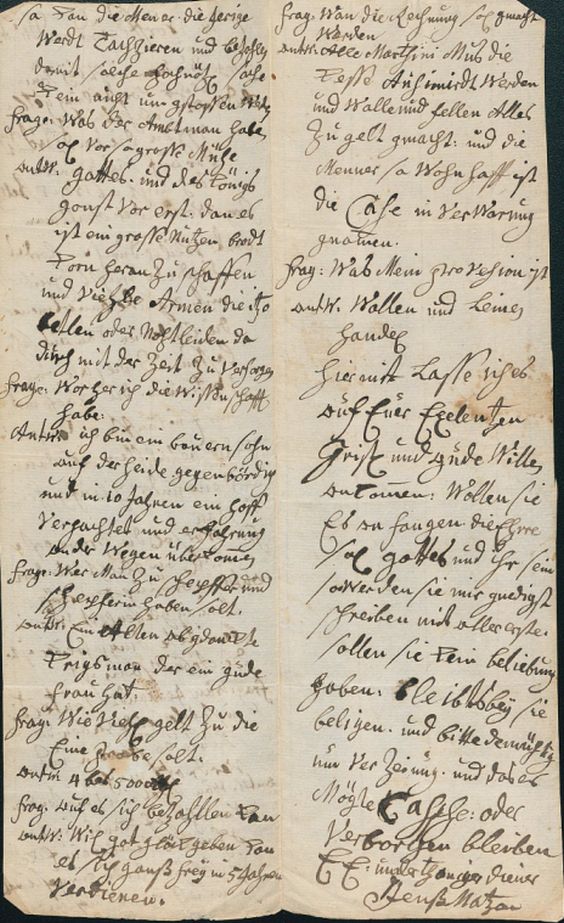 so kan die Mener die jerige
Werdt Taxzieren und bezahlen
damit solche hochnötz sache
kein nicht um gstossen
frage: Was der Ambtman haben
sol vor so grosse Mühe
antw: gottes und des Königs
gonst vor erst. dan es
ist ein grosse Nutzen brodt
korn heran zu schaffen
und viehle Armen die itzo
betlen oder Nohtleiden da
durch mit der Zeit zu versorgen
frage: Wor her ich die Wissenschafft
habe:
Antw: ich bin ein bauern sohn
auf der heide gegenbördig
und in 10 Jahren ein hoff
verpachtet und erfahrung
an der Wegen überkommen
frage: Wer Man zu schepffer und
schepferin haben solt.
antw: Ein Alten abgdanckte
krigsman der ein gude
frau hat.
frag: Wie viehl gelt zu die
Eine probe solt.
antw 4 bes 5000
frag: auf es sich bezahllen kan
antw: Wil got glück geben kan
es sich ganss frey in 5 Jahren
Verdienen.
frag: Wan die Rechnung sol gmacht
Werden
antw: Alle Martini Mus die
Werden
und Walle und fellen Alles
zu gelt gmacht: und die
Menner so Wohnhafft ist
die Case in Verwarung
gnomen.
frag: Was Mein provesion ist
antw: Wollen und Leinen
handel
hiermit Lasse ich es
auf Euer Exelentzen
und gude Willen
ankommen: Wollen sie
Es an fangen die Ehrre
sol gottes und ihr sein
so werden sie mir gnedigst
schreiben mit aller erste.
sollen sie kein beliebung
haben: bleibts bey sie
beligen. und bitte demühtig
um Verzeiung. und das es
Mögte Casche: oder
Verborgen bleiben
E E: untertheniger diener